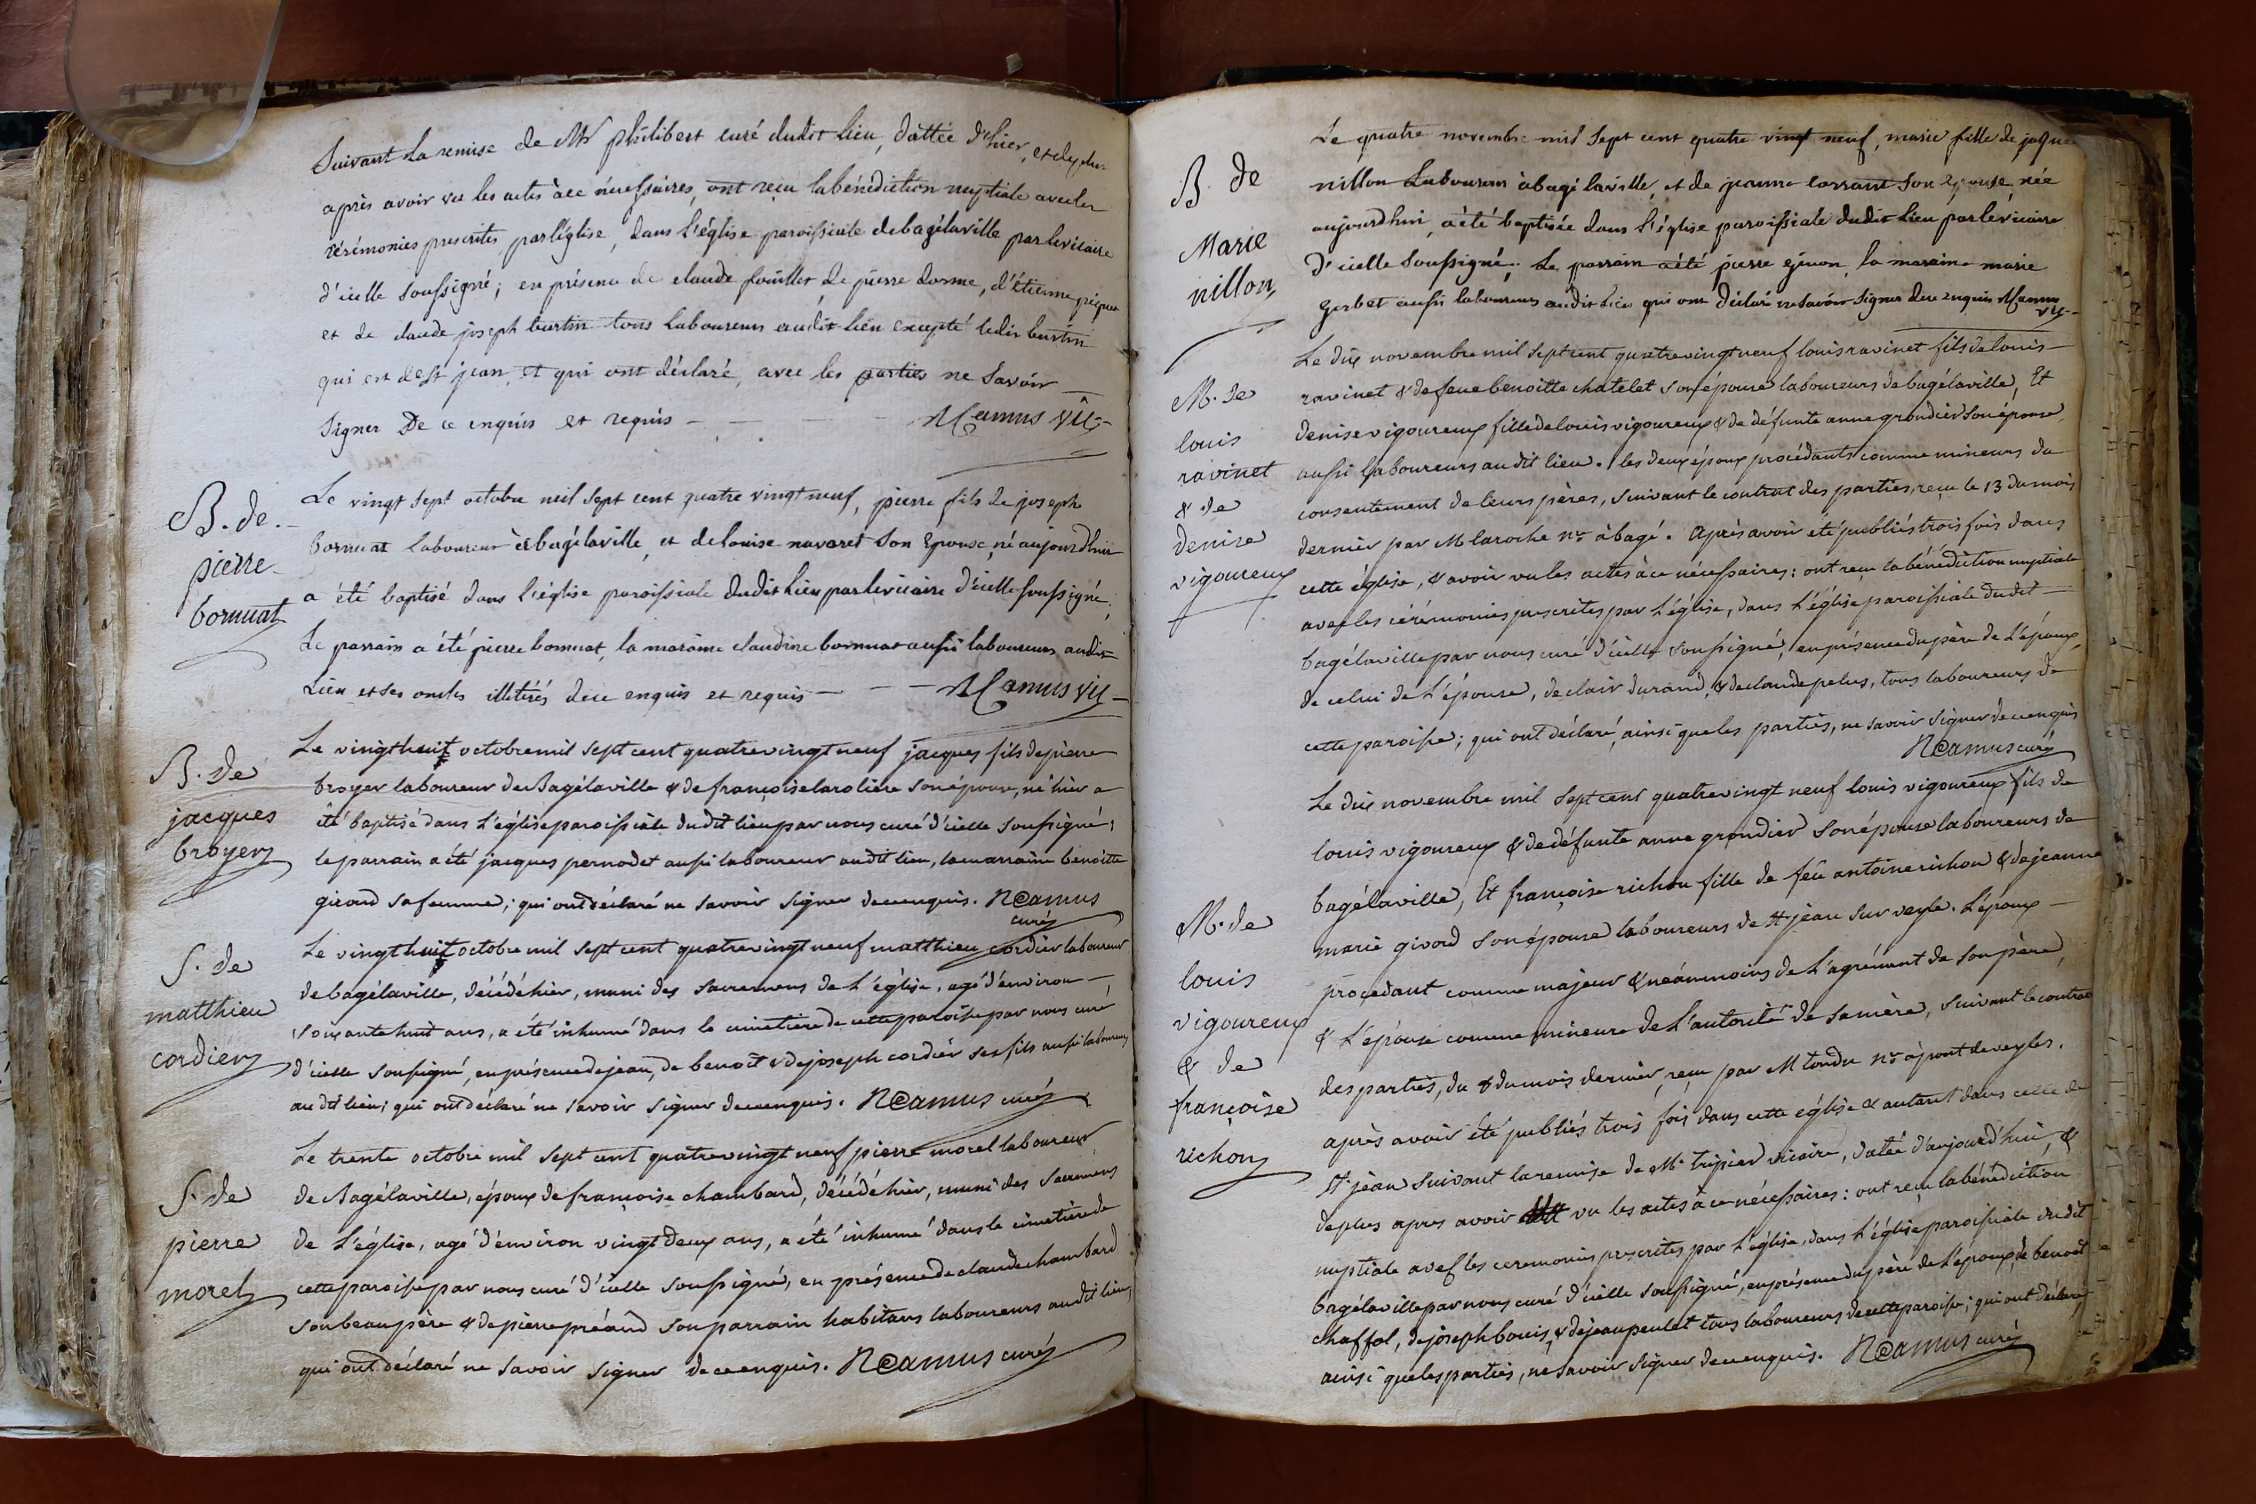 Suivant la remise de Mr philibert curé dudit lieu, dattée d'hier, et de plus
après avoir vu les actes à ce nécessaires, ont reçu la bénédiction nuptiale avec les
cérémonies prescrites par l'église, dans l'église paroissiale de bagélaville par le vicaire
d'icelle soussigné; en présence de claude fouillet de pierre dorme, d'étienne
et de claude joseph burtin tous laboureurs audit lieu excepté ledit burtin
qui est de st jean, et qui ont déclaré, avec les parties ne savoir
signer De ce enquis et requis - - - - N Camus vic
B. de
pierre
bornuat
Le vingt sept octobre mil sept cent quatre vingt neuf, pierre fils de joseph
bornuat laboureur à bagélaville, et de louise navaret son épouse, né aujourd'hui
a été baptisé dans l'église paroissiale dudit lieu par le vicaire d'icelle soussigné,
Le parrain a été pierre bornuat, la maraine claudine bornuat aussi laboureurs audit
Lieu et ses oncles illitérés de ce enquis et requis - - - N Camus vic
B. de
jacques
broyer
Le vingt huit octobre mil sept cent quatre vingt neuf jacques fils de pierre
broyer laboureur de Bagélaville & de françoise laroliere son épouse, né hier a
été baptisé dans l'église paroissiale dudit lieu par nous curé d'icelle soussigné;
le parrain a été jacques pernodet aussi laboureur audit lieu, la marraine benoitte
giroud sa femme; qui ont déclaré ne savoir signer de ce enquis. N Camus
curé
S. de
matthieu
cordier
Le vingt huit octobre mil sept cent quatre vingt neuf matthieu cordier laboureur
de bagélaville, décédé hier, muni des sacremens de l'église, agé d'environ
soixante huit ans, a été inhumé dans le cimetiere de cette paroisse par nous curé
d'icelle soussigné, en présence de jean, de benoît & de joseph cordier ses fils aussi laboureurs
audit lieu; qui ont déclaré ne savoir signer de ce enquis. N Camus curé
S. de
pierre
morel
Le trente octobre mil sept cent quatre vingt neuf pierre morel laboureur
de Bagélaville, époux de françoise chambard, décédé hier, muni des sacremens
de l'église, agé d'environ vingt deux ans, a été inhumé dans le cimetiere de
cette paroisse par nous curé d'icelle soussigné, en présence de claude chambard
son beaupère & de pierre préaud son parrain habitans laboureurs audit lieu;
qui ont déclaré ne savoir signer de ce enquis. N Camus curé
B. de
Marie
nillon
Le quatre novembre mil sept cent quatre vingt neuf, marie fille de jaque
nillon Laboureur à bagé laville, et de jeanne lorraut son épouse née
aujourdhui, a été baptisée dans l'église paroissiale dudit lieu par le vicaire
d'icelle soussigné. Le parrain a été pierre, la maraine marie
gerbet aussi laboureurs audit lieu qui ont déclaré ne savoir signer de ce enquis N Camus
vic
M. de
louis
ravinet
& de
denise
vigoureux
Le dix novembre mil sept cent quatre vingt neuf louis ravinet fils de louis
ravinet & de feue benoitte chatelet son épouse laboureurs de bagélaville, Et
denise vigoureux fille de louis vigoureux & de défunte anne grondier son épouse
aussi laboureurs audit lieu. les deux époux procédants comme mineurs du
consentement de leurs pères, suivant le contrat des parties, reçu le 13 du mois
dernier par M laroche nre à bagé. Après avoir été publiés trois fois dans
cette église, & avoir vu les actes à ce nécessaires: ont reçu la bénédiction nuptiale
avec les cérémonies prescrites par l'église, dans l'église paroissiale dudit
bagélaville par nous curé d'icelle soussigné, en présence du père de l'époux,
de celui de l'épouse, de clair durand, & de claude pelus, tous laboureurs de
cette paroisse; qui ont déclaré, ainsi que les parties, ne savoir signer de ce enquis
N Camus curé
M. de
louis
vigoureux
& de
françoise
richon
Le dix novembre mil sept cent quatre vingt neuf louis vigoureux fils de
louis vigoureux & de défunte anne grondier son épouse laboureurs de
bagélaville, Et françoise richon fille de feû antoine richon & de jeanne
marie girod son épouse laboureurs de st jean sur veyle. L'époux
procédant comme majeur & néanmoins de l'agrément de son père,
& l'épouse comme mineure de l'autorité de sa mère, suivant le contrat
des parties, du 8 du mois dernier, reçu par M tondu nre à pont de veyles.
après avoir été publiés trois fois dans cette église & autant dans celle de
st jean suivant la remise de Mr tripier vicaire, datée d'aujourd'hui, &
de plus apres avoir vu les actes à ce nécessaires: ont reçu la bénédiction
nuptiale avec les ceremonies prescrites par l'église, dans l'église paroissiale dudit
bagélaville par nous curé d'icelle soussigné, en présence du père de l'époux, de benoît
chaffol, de joseph bouis, & de jean peulet tous laboureurs de cette paroisse; qui ont déclaré,
ainsi que les parties, ne savoir signer de ce enquis. N Camus curé